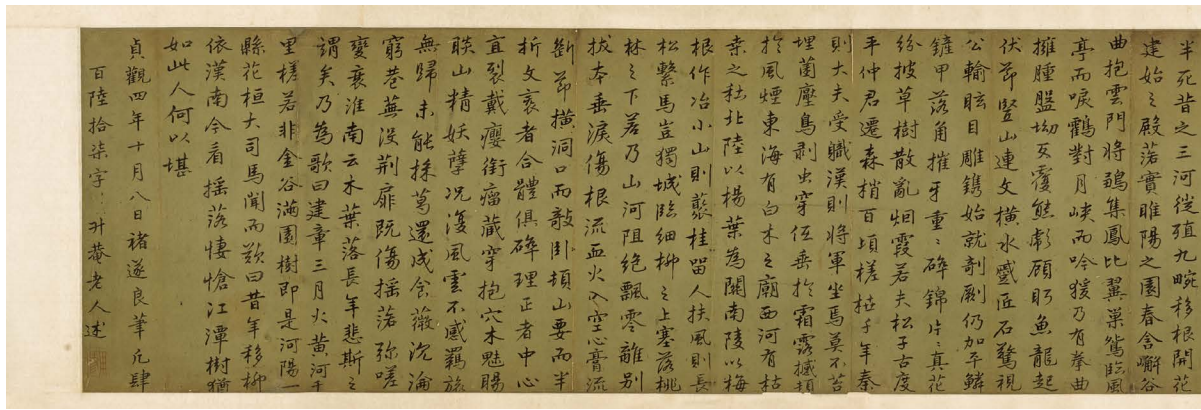 半死昔之三河徙殖九畹移根開花
建始之殿落實睢陽之園春含嶰谷
曲抱雲門將鶵集鳳比翼巢鴛臨風
亭而唳鶴對月峽而吟猨乃有拳曲
擁腫盤坳反覆熊彪顧盻魚龍起
伏節豎山連文橫水蹙匠石驚視
公輸眩目雕鐫始就剞劂仍加平鱗
鏟甲落角摧牙重〻碎錦片〻真花
紛披草樹散亂烟霞若夫松子古度
平仲君遷森梢百頃槎枿千年秦
則大夫受職漢則將軍坐焉莫不苔
埋菌壓鳥剥虫穿低垂於霜露撼頓
於風煙東海有白木之廟西河有枯
桒之社北陸以楊葉為關南陵以梅
根作冶小山則藂桂留人扶風則長
松繫馬豈獨城臨細柳之上塞落桃
林之下若乃山河阻絕飄零離別
拔本垂淚傷根流血火入空心膏流
斷節橫洞口而敧卧頓山要而半
折文衺者合體俱碎理正者中心
直裂戴癭銜瘤藏穿抱穴木魅賜
睒山精妖孽況復風雲不感羈旅
無歸未能採葛還成食薇沉淪
窮巷蕪没荊扉既傷搖落弥嗟
變衰淮南云木葉落長年悲斯之
謂矣乃為歌曰建章三月火黃河千
里槎若非金谷滿園樹即是河陽一
縣花桓大司馬聞而歎曰昔年移柳
依漢南今看搖落悽愴江潭樹猶
如此人何以堪
貞觀四年十月八日褚遂良筆凡肆
百陸拾柒字 升菴老人述